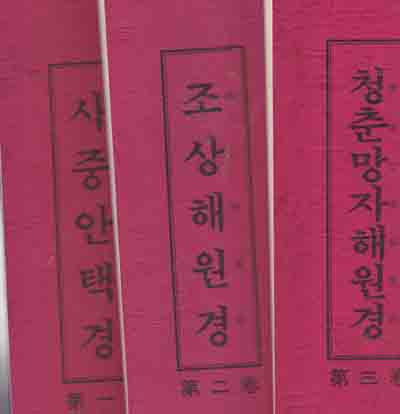 사중안택경
第一
조상해원경
第二卷
청춘망자해원경
第三卷